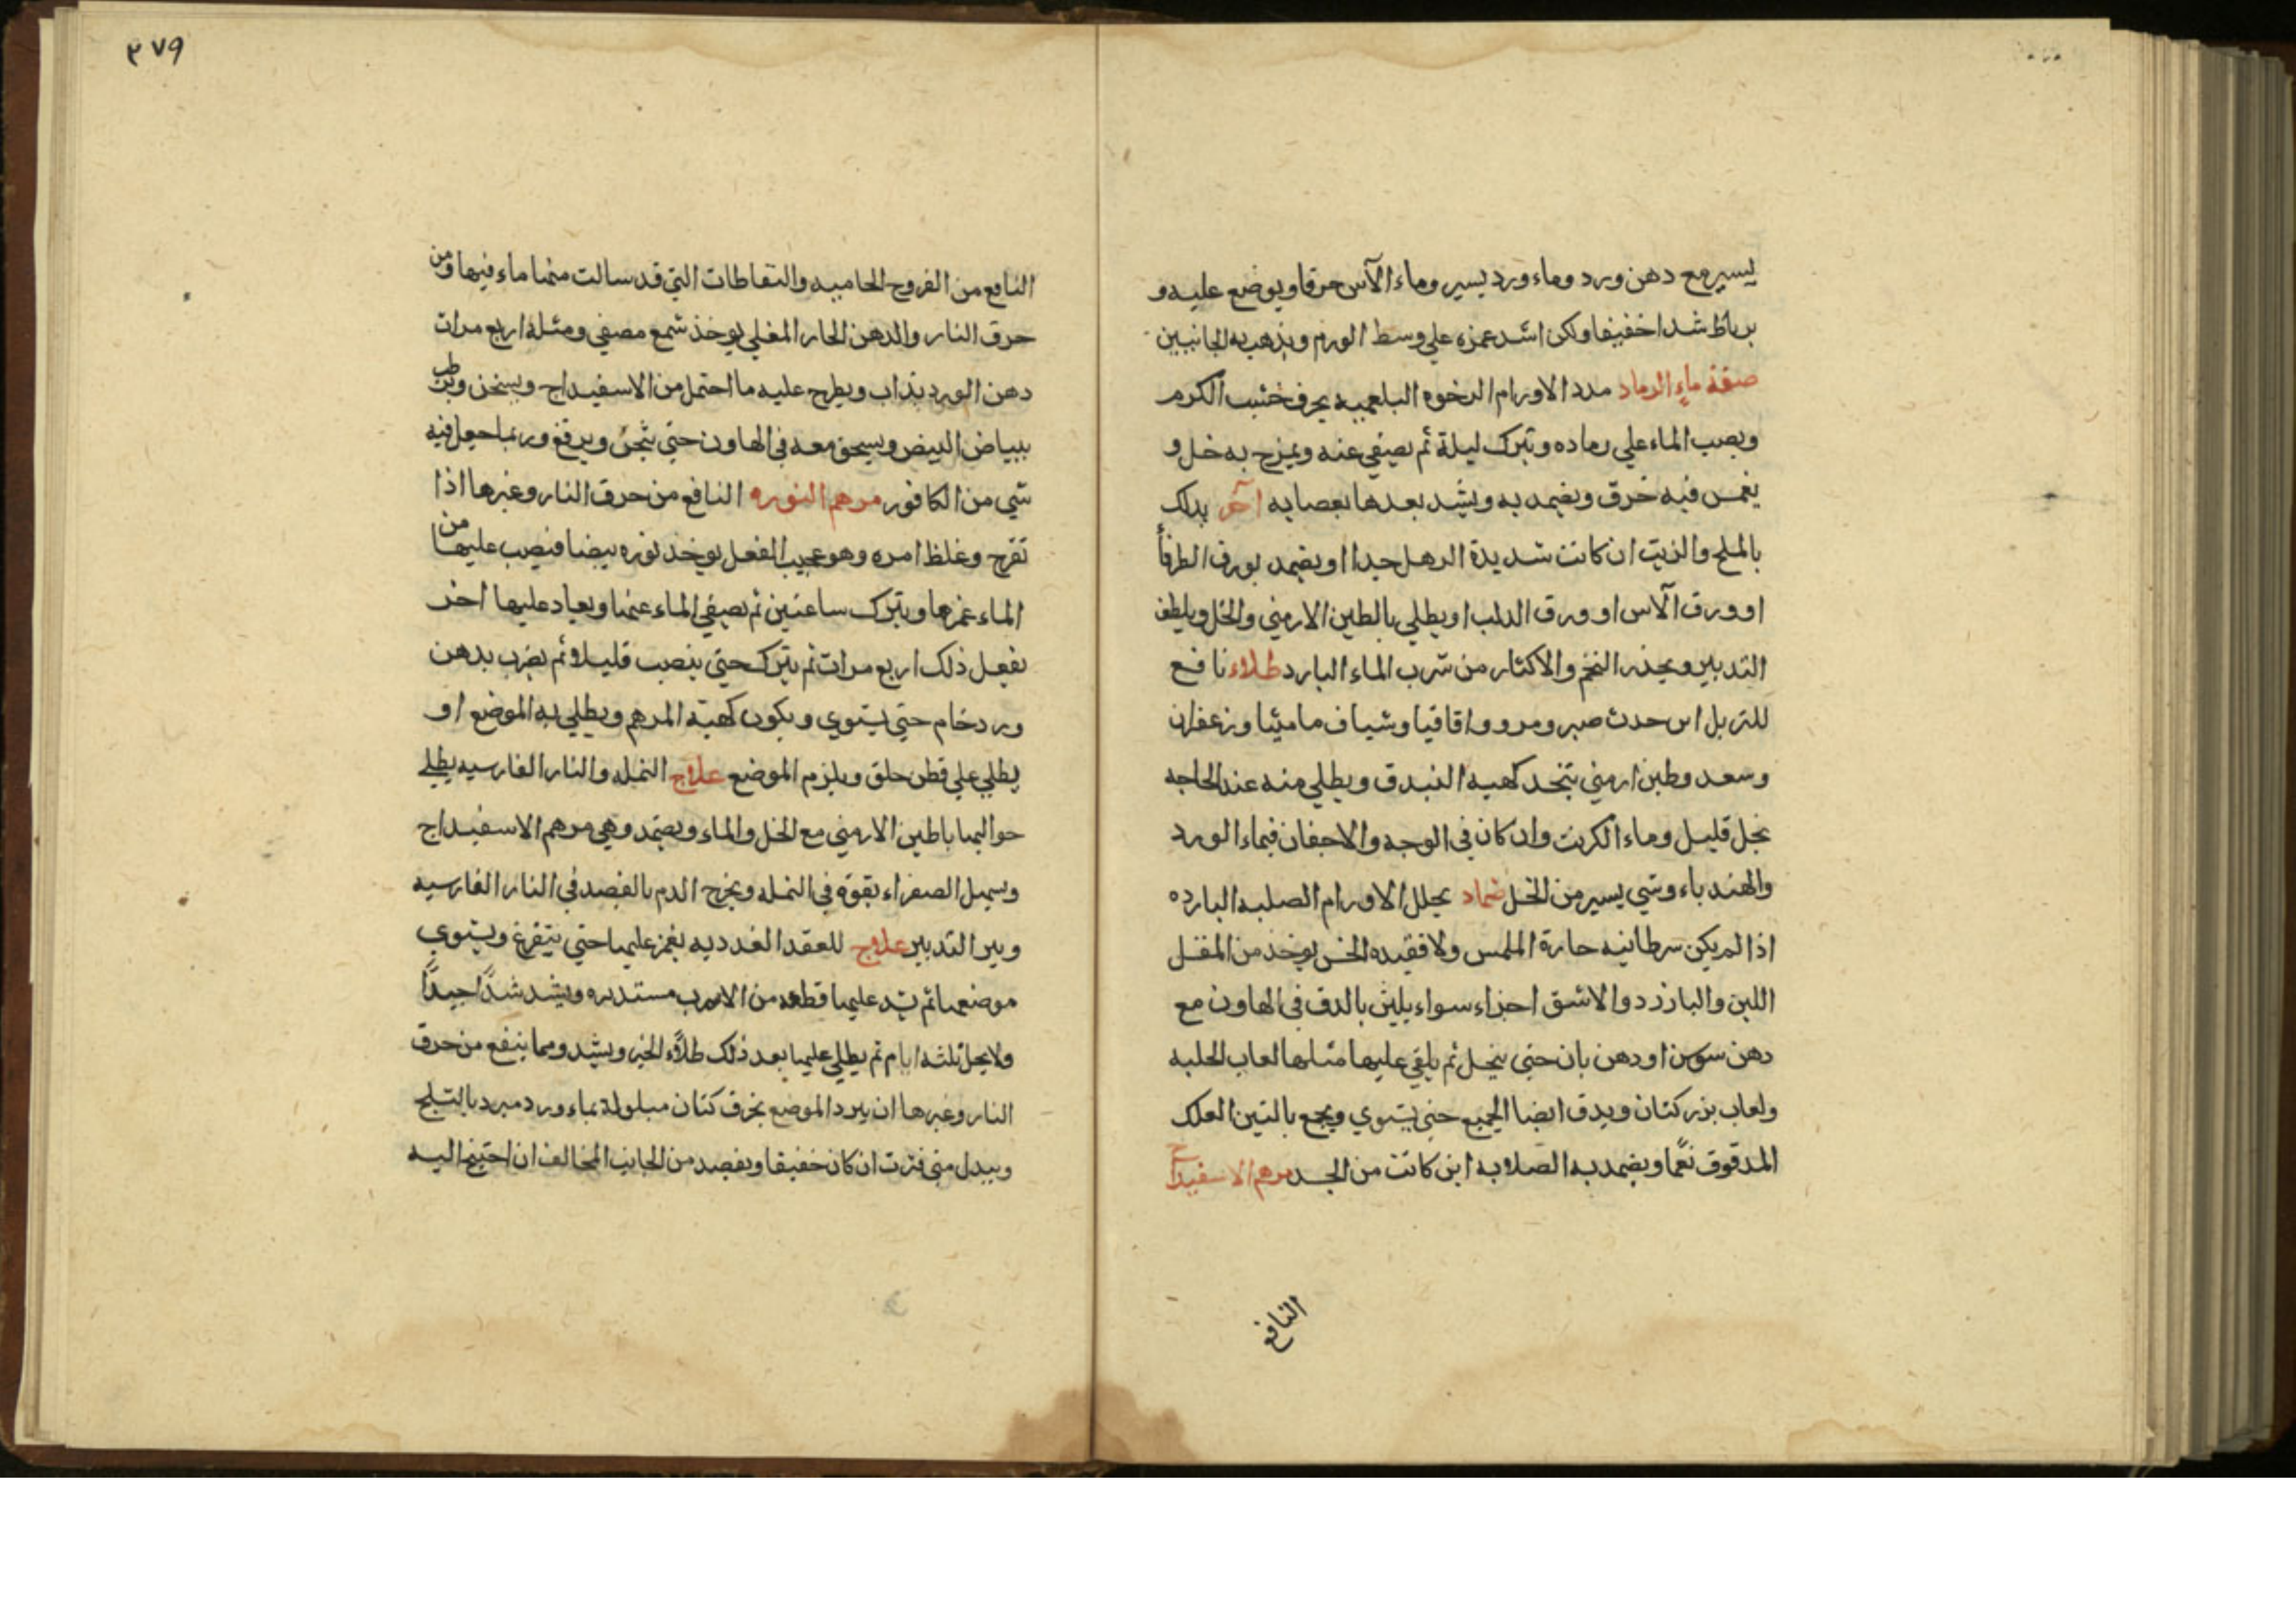 يسير مع دهن ورد وماء ورد يسير وماء الآس حرقا ويوضع عليه و
برباط شدا خفيفا ولكن اشد غمزه علي وسط الورم ويذهب به الجانبين
صفة ماء الرماد مدد الاورام الرخوه البلعميه يحرق خشب الكرم
ويصب الماء علي رماده ويترك ليلة ثم يصفي عنه ويمزج به خل و
يغمس فيه خرق ويضمد به ويشد بعدها بعصابه آخر يدلك
بالملح والزيت ان كانت شديدة الرهل جدا او يضمد بورق الطرفأ
او ورق الآس او ورق الدلب او يطلي بالطين الارمني والخل ويلطف
التدبير ويحذر التخم والاكثار من شرب الماء البارد طلاء نافع
للتربل اين حدث صبر ومر واقاقيا وشياف ماميثا وزعفران
وسعد وطين ارمني يتخد كهيه البندق ويطلي منه عند الحاجه
بخل قليل وماء الكرنب وان كان في الوجه والاجفان فبماء الورد
والهندباء وشي يسير من الخل ضماد يحلل الاورام الصلبه البارده
اذا لم يكن سرطانيه حارة الملمس ولا فقيده الحس يوخد من المقل
اللين والبازرد والاشق اجزاء سواء يلين بالدق في الهاون مع
دهن سوسن او دهن بان حتي ينحل ثم يلقي عليها مثلها لعاب الحلبه
ولعاب بزر كتان ويدق ايضا الجميع حتي يستوي ويجمع بالتين العلك
المدقوق نعمًا ويضمد به الصلابه اين كانت من الجسد مرهم الاسفيداج
النافع
٣٧٩
النافع من القروح الحاميه والنفاطات التي قد سالت منها ماء فيها ومن
حرق النار والدهن الحار المغلي يوخذ شمع مصفي ومثله اربع مرات
دهن الورد يذاب ويطرح عليه ما احتمل من الاسفيداج ويسخن
ببياض البيض ويسحق معه في الهاون حتي يثخن ويرفع وربما جعل فيه
شي من الكافور مرهم النوره النافع من حرق النار وغيرها اذا
تقرح وغلظ امره وهو عجيب الفعل يوخد نوره بيضا فيصب عليها من
الماء غمرها ويترك ساعتين ثم يصفي الماء عنها ويعاد عليها اخر
يفعل ذلك اربع مرات ثم يترك حتي ينصب قليلا ثم يضرب بدهن
ورد خام حتي يستوي ويكون كهيئة المرهم ويطلي به الموضع او
يطلي علي قطن خلق ويلزم الموضع علاج النمله والنار الفارسيه يطلي
حواليها باطين الارمني مع الخل والماء ويضمد وهي مرهم الاسفيداج
وسهل الصفراء بقوة في النمله ويخرج الدم بالفصد في النار الفارسيه
وبين التدبير علاج للعقد الغدديه يغمز عليها حتي يتفرغ ويستوي
موضعها ثم يشد عليها قطعه من الاسرب مستديره ويشد شدًّا جيدًّا
ولا يحل ثلثه ايام ثم يطلي عليها بعد ذلك طلاًء ويشد ومما ينفع من حرق
النار وغيرها ان يبرد الموضع بخرق كتان مبلولة بماء ورد مبرد بالثلج
ويبدل متي فترت ان كان خفيفا ويفصد من الجانب المخالف ان احتيج اليه